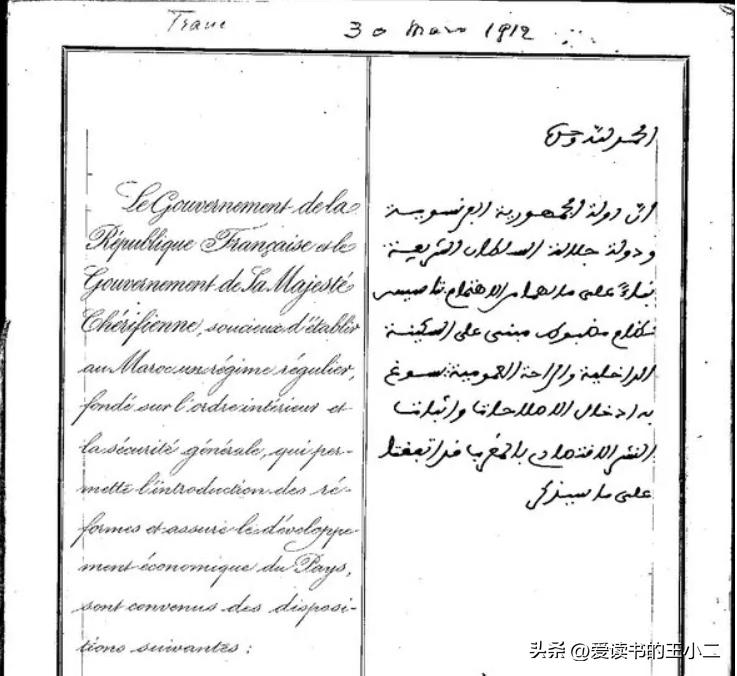 30 Mars 1912
Le Gouvernement de la
République Française et le
Gouvernement de Sa Majesté
Chérifienne, soucieux d'établir
au Maroc un régime régulier,
fondé sur l'ordre intérieur et
la sécurité générale, qui per-
mette l'introduction des ré-
formes et assure le développe-
ment économique du Pays,
sont convenus des disposi-
tions suivantes :
الحمد لله وحده
ان دولة الجمهورية الفرنسوية
ودولة جلالة السلطان الشريفة
بناءً على ما لهما من الاهتمام بتاسيس
نظام مضبوط مبني على السكينة
الداخلية والراحة العمومية يسوغ
به ادخال الاصلاحات واثبات
النشر الاقتصادي بالمغرب قد اتفقتا
على ما سيذكر
头条 @爱读书的王小二